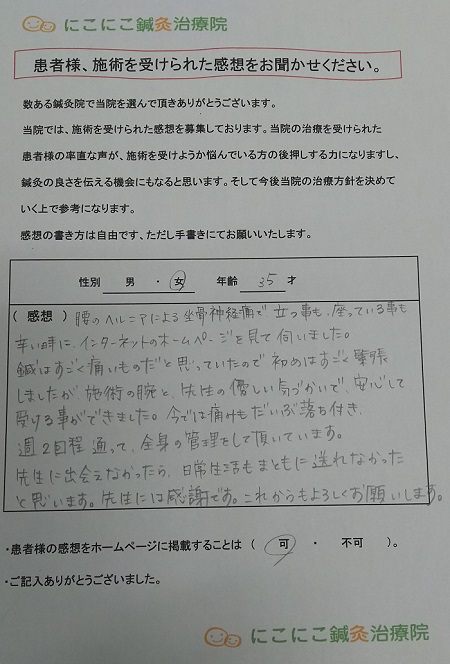 にこにこ鍼灸治療院
患者様、施術を受けられた感想をお聞かせください。
数ある鍼灸院で当院を選んで頂きありがとうございます。
当院では、施術を受けられた感想を募集しております。当院の治療を受けられた
患者様の率直な声が、施術を受けようか悩んでいる方の後押しする力になりますし、
鍼灸の良さを伝える機会にもなると思います。そして今後当院の治療方針を決めて
いく上で参考になります。
感想の書き方は自由です、ただし手書きにてお願いいたします。
性別 男 ・ 女 年齢 35 才
( 感想 ) 腰のヘルニアによる坐骨神経痛で 立つ事も、座っている事も
辛い時に、インターネットのホームページを見て伺いました。
鍼はすごく痛いものだと思っていたので初めはすごく緊張
しましたが、施術の腕と、先生の優しい気づかいで、安心して
受ける事ができました。今では痛みもだいぶ落ち付き、
週2回程通って、全身の管理をして頂いています。
先生に出会えなかったら、日常生活もまともに送れなかった
と思います。先生には感謝です。これからもよろしくお願いします。
・患者様の感想をホームページに掲載することは ( 可 ・ 不可 )。
・ご記入ありがとうございました。
にこにこ鍼灸治療院